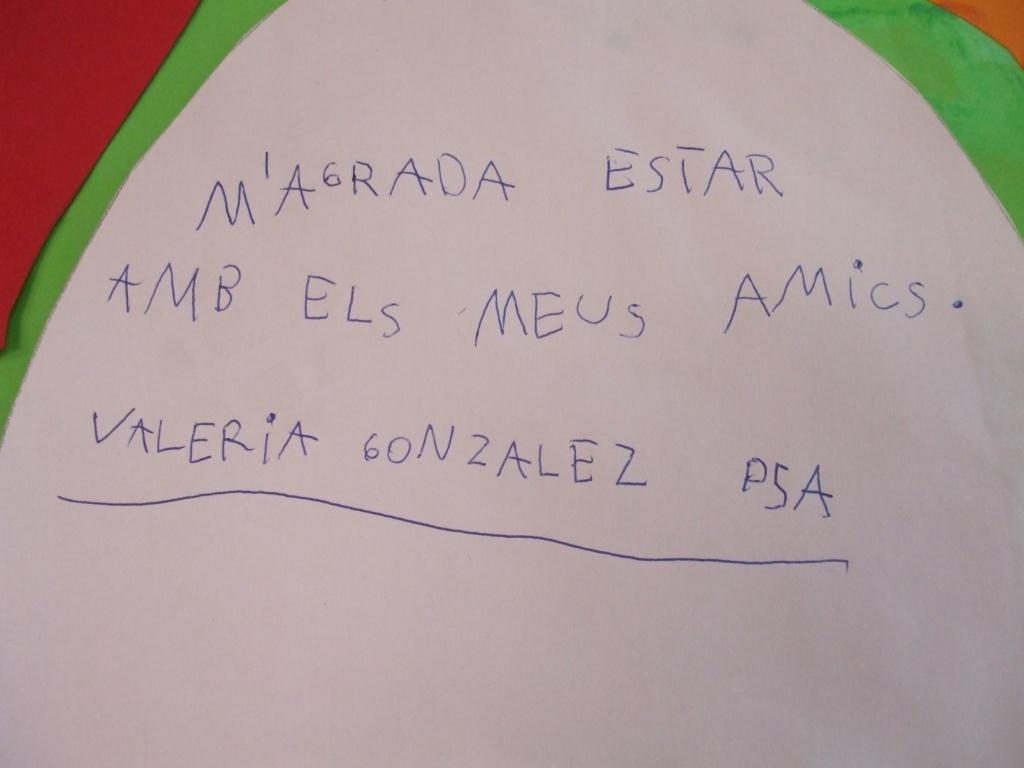 M'AGRADA ESTAR
AMB ELS MEUS AMiCS.
VALERiA GONZALEZ P5A